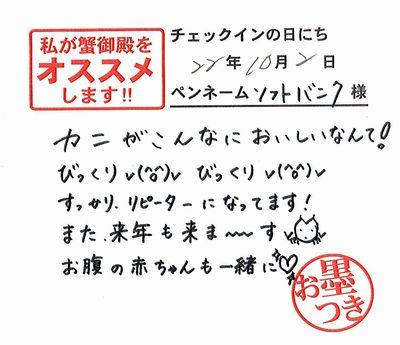 私が蟹御殿を
オススメ
します!!
チェックインの日にち
22年10月2日
ペンネームソフトバンク様
カニがこんなにおいしいなんて!
びっくりv(^o^)v びっくりv(^o^)v
すっかり、リピーターになってます!
また、来年も来ま〜〜す
お腹の赤ちゃんも一緒に♡
お墨
つき